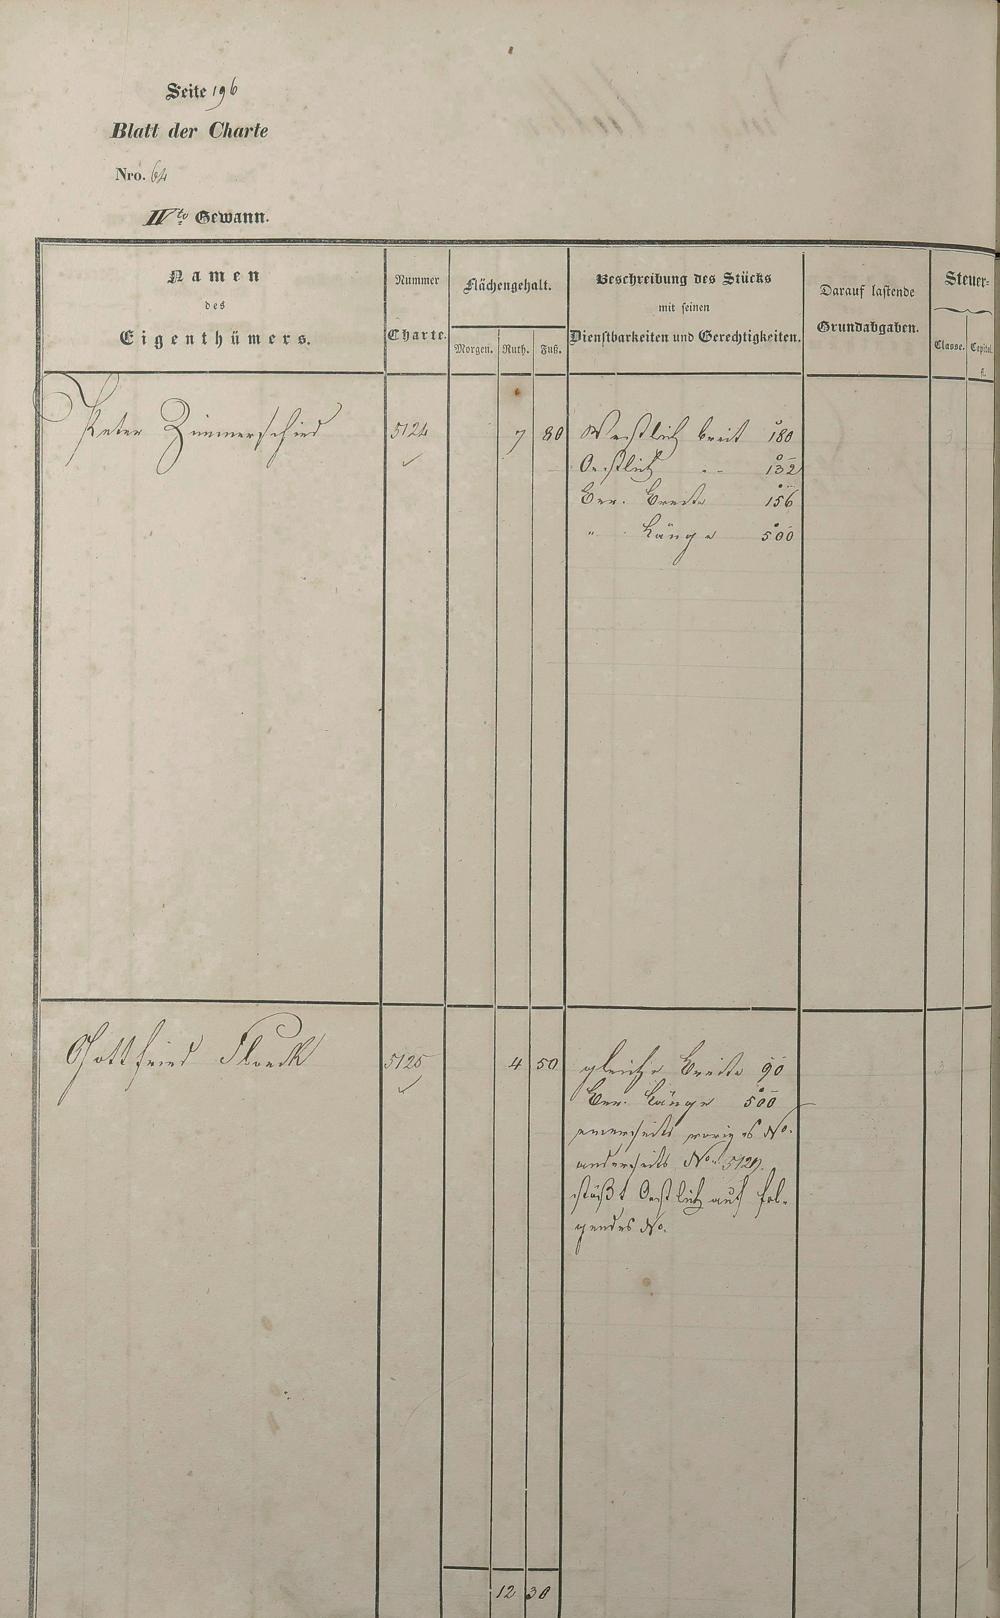 Seite 196
Blatt der Charte
Nro. 64
IVte Gewann.
Namen
des
Eigenthümers.
Nummer
Charte.
Flächengehalt.
Morgen. Ruth. Fuß.
Beschreibung des Stücks
mit seinen
Dienstbarkeiten und Gerechtigkeiten.
Darauf lastende
Grundabgaben.
Steuer-
Classe. Capital.
fl.
Peter Zimmerschied 5124 7 80 Westlich breit 180
Oestlich " 132
Ber. Breite 156
" Länge 500
Gottfried Flöck 5125 4 50 gleiche Breite 90
Ber. Länge 500
einerseits voriges No.
anderseits No.
stößt Oestlich auf fol-
gendes No.
12 30